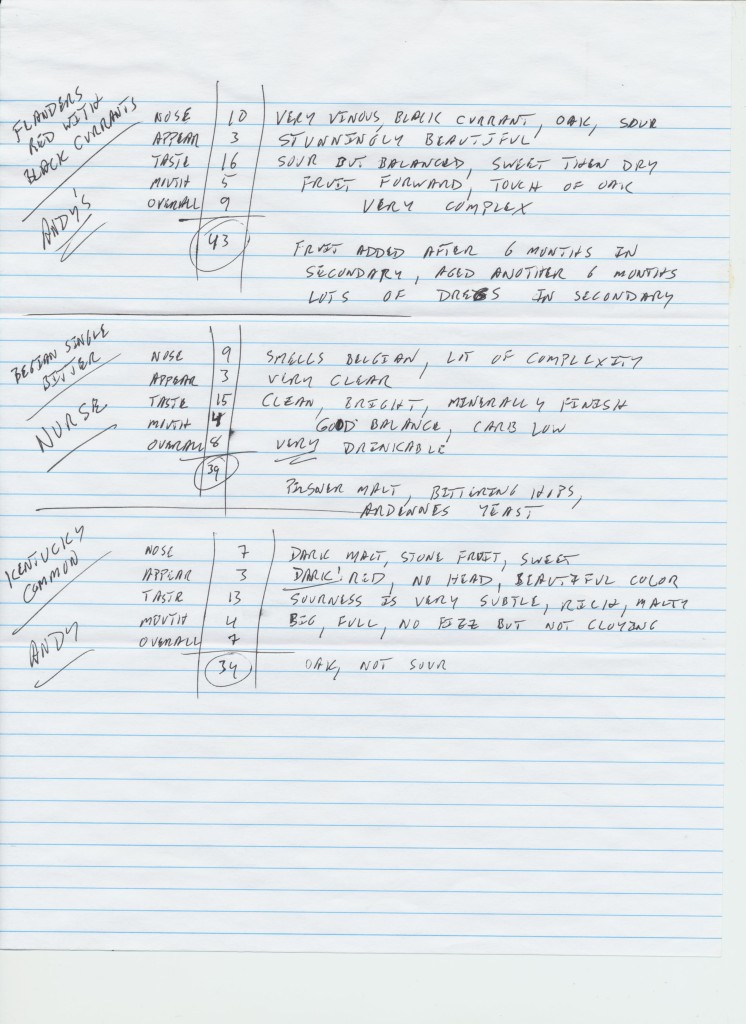 FLANDERS
RED WITH
BLACK CURRANTS
ANDY'S
NOSE 10 VERY VINOUS, BLACK CURRANT, OAK, SOUR
APPEAR 3 STUNNINGLY BEAUTIFUL
TASTE 16 SOUR BUT BALANCED, SWEET THEN DRY
MOUTH 5 FRUIT FORWARD, TOUCH OF OAK
OVERALL 9 VERY COMPLEX
43
FRUIT ADDED AFTER 6 MONTHS IN
SECONDARY, AGED ANOTHER 6 MONTHS
LOTS OF DREGS IN SECONDARY
BEGIAN SINGLE
BITTER
NURSE
NOSE 9 SMELLS BELGIAN, LOT OF COMPLEXITY
APPEAR 3 VERY CLEAR
TASTE 15 CLEAN, BRIGHT, MINERALLY FINISH
MOUTH 4 GOOD BALANCE, CARB LOW
OVERALL 8 VERY DRINKABLE
39
PILSNER MALT, BITTERING HOPS,
ARDENNES YEAST
KENTUCKY
COMMON
ANDY
NOSE 7 DARK MALT, STONE FRUIT, SWEET
APPEAR 3 DARK! RED, NO HEAD, BEAUTIFUL COLOR
TASTE 13 SOURNESS IS VERY SUBTLE, RICH, MALTY
MOUTH 4 BIG, FULL, NO FIZZ BUT NOT CLOYING
OVERALL 7
34
OAK, NOT SOUR